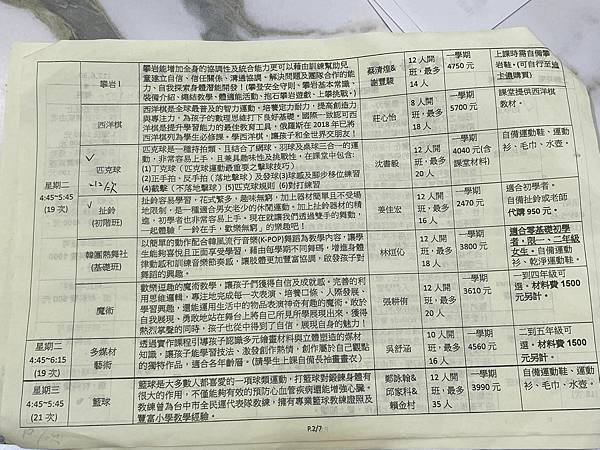 攀岩 I
攀岩能增加全身的協調性及統合能力更可以藉由訓練幫助兒
童建立自信、信任關係、溝通協調、解決問題及團隊合作的能
力、自我探索身體潛能開發！(攀登安全守則、攀岩基本常識、
裝備介紹、繩結教學、體適能活動、抱石攀岩遊戲、上攀挑戰。)
蔡清煌&
謝豐駿
12 人開
班，最多
14 人
一學期
4750 元
上課時需自備攀
岩鞋。(可自行至迪
上週購買)
西洋棋
西洋棋是全球最普及的智力運動。培養定力耐力，提高創造力
與專注力，為孩子的數理思維打下良好基礎。國際一致認可西
洋棋是提升學習能力的最佳教育工具，俄羅斯在 2018 年已將
西洋棋列為學生必修課。學西洋棋，讓孩子和全世界交朋友！
莊心怡
8 人開
班，最多
18 人
一學期
5700 元
課堂提供西洋棋
教材。
星期二
4:45~5:45
(19 次)
匹克球
匹克球是一種持拍類、且結合了網球、羽球及桌球三合一的運
動，非常容易上手，且兼具趣味性及挑戰性，在課堂中包含:
(1)丁克球（匹克球運動最重要之擊球技巧）
(2)正手拍，反手拍（落地擊球）及發球(3)球感及腳步移位練習
(4)截擊（不落地擊球）(5)匹克球規則 (6)對打練習
沈書毅
12 人開
班，最多
20 人
一學期
4040 元(含
課堂材料)
自備運動鞋、運動
衫、毛巾、水壺。
扯鈴
(初階班)
扯鈴容易學習，花式繁多，趣味無窮，加上器材簡單且不受場
地限制，是一種適合男女老少的休閒運動。加上扯鈴器材的精
進，初學者也非常容易上手。現在就讓我們透過雙手的舞動，
一起體驗「一鈴在手，歡樂無窮」的樂趣吧！
姜佳宏
12 人開
班，最多
16 人
一學期
2470 元
適合初學者。
自備扯鈴或老師
代購 950 元。
韓團熱舞社
(基礎班)
以簡單的動作配合韓風流行音樂(K-POP)舞蹈為教學內容，讓學
生能夠喜悅且正面享受學習，藉由每學期不同舞碼，增進身體
律動感和訓練音樂節奏感，讓肢體更加豐富協調，啟發孩子對
舞蹈的興趣。
林烜伈
12 人開
班，最多
18 人
一學期
3800 元
適合零基礎初學
者，限一、二年級
女生。自備運動
衫、乾淨運動鞋。
魔術
歡樂逗趣的魔術教學，讓孩子們獲得自信及成就感。完善的利
用思維邏輯，專注地完成每一次表演、培養口條、人際發展、
學習興趣，還能運用生活中的物品表演神奇有趣的魔術。敢於
自我展現，勇敢地站在舞台上將自己所見所學展現出來。獲得
熱烈掌聲的同時，孩子也從中得到了自信，展現自身的魅力！
張耕侑
12 人開
班，最多
20 人
一學期
3610 元
一到四年級可
選。材料費 1500
元另計。
星期二
4:45~6:15
(19 次)
多媒材
藝術
透過實作課程引導孩子認識多元繪畫材料與立體塑造的媒材
知識，讓孩子能學習技法、激發創作熱情，創作屬於自己觀點
的獨特作品，適合各年齡層。(請學生上課自備長袖畫畫衣)
吳舒涵
10 人開
班，最多
16 人
一學期
4560 元
二到五年級可
選。材料費 1500
元另計。
星期三
4:45~5:45
(21 次)
籃球
籃球是大多數人都喜愛的一項球類運動，打籃球對鍛鍊身體有
很大的作用，不僅能夠有效的預防心血管疾病還能增強心臟。
教練曾為台中市全民運代表隊教練，擁有專業籃球教練證照及
豐富小學教學經驗。
鄭詠翰&
邱家科&
賴金村
12 人開
班，最多
35 人
一學期
3990 元
自備運動鞋、運動
衫、毛巾、水壺。
P.2/7